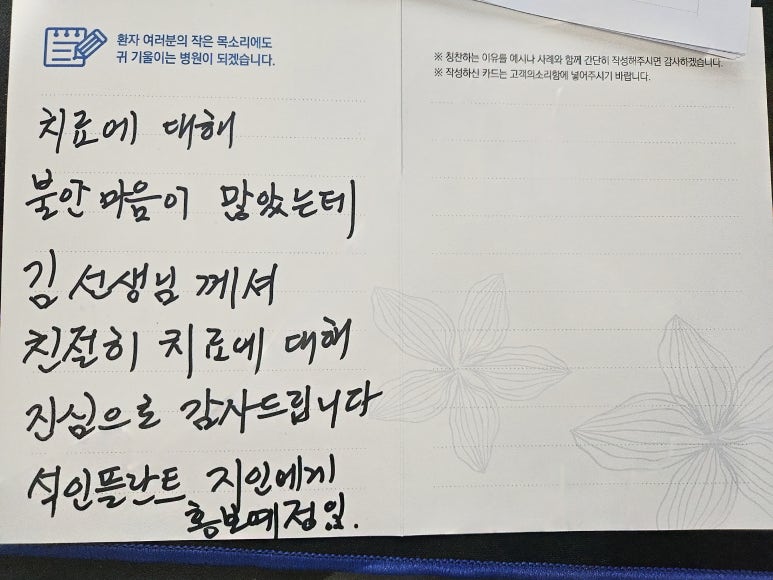 환자 여러분의 작은 목소리에도
귀 기울이는 병원이 되겠습니다.
※ 칭찬하는 이유를 예시나 사례와 함께 간단히 작성해주시면 감사하겠습니다.
※ 작성하신 카드는 고객의소리함에 넣어주시기 바랍니다.
치료에 대해
불안 마음이 많았는데
김 선생님 께셔
친절히 치료에 대해
진심으로 감사드립니다
석인쁠란트 지인에게
홍보예정임.